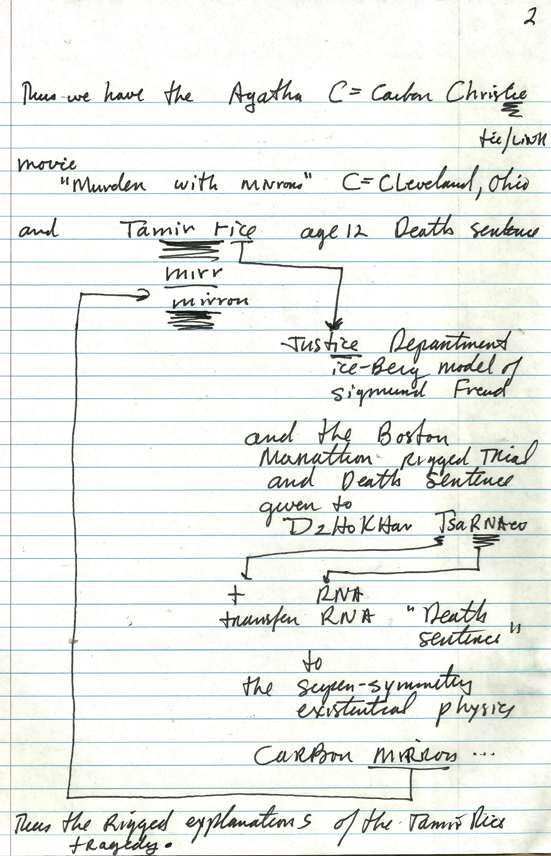 2
Thus we have the Agatha C = Carbon Christie
tie/LiNK
movie
"Murder with mirrors" C = CLeveland, Ohio
and Tamir rice age 12 Death sentence
mirr
mirror
Justice Department
ice-Berg model of
sigmund Freud
and the Boston
Marathon Rigged Trial
and Death Sentence
given to
DzHoKHar TsaRNaev
t RNA
transfer RNA "Death
sentence"
to
the super-symmetry
existential physics
CarBon MIRRor ...
Thus the Rigged explanations of the Tamir Rice
tragedy.